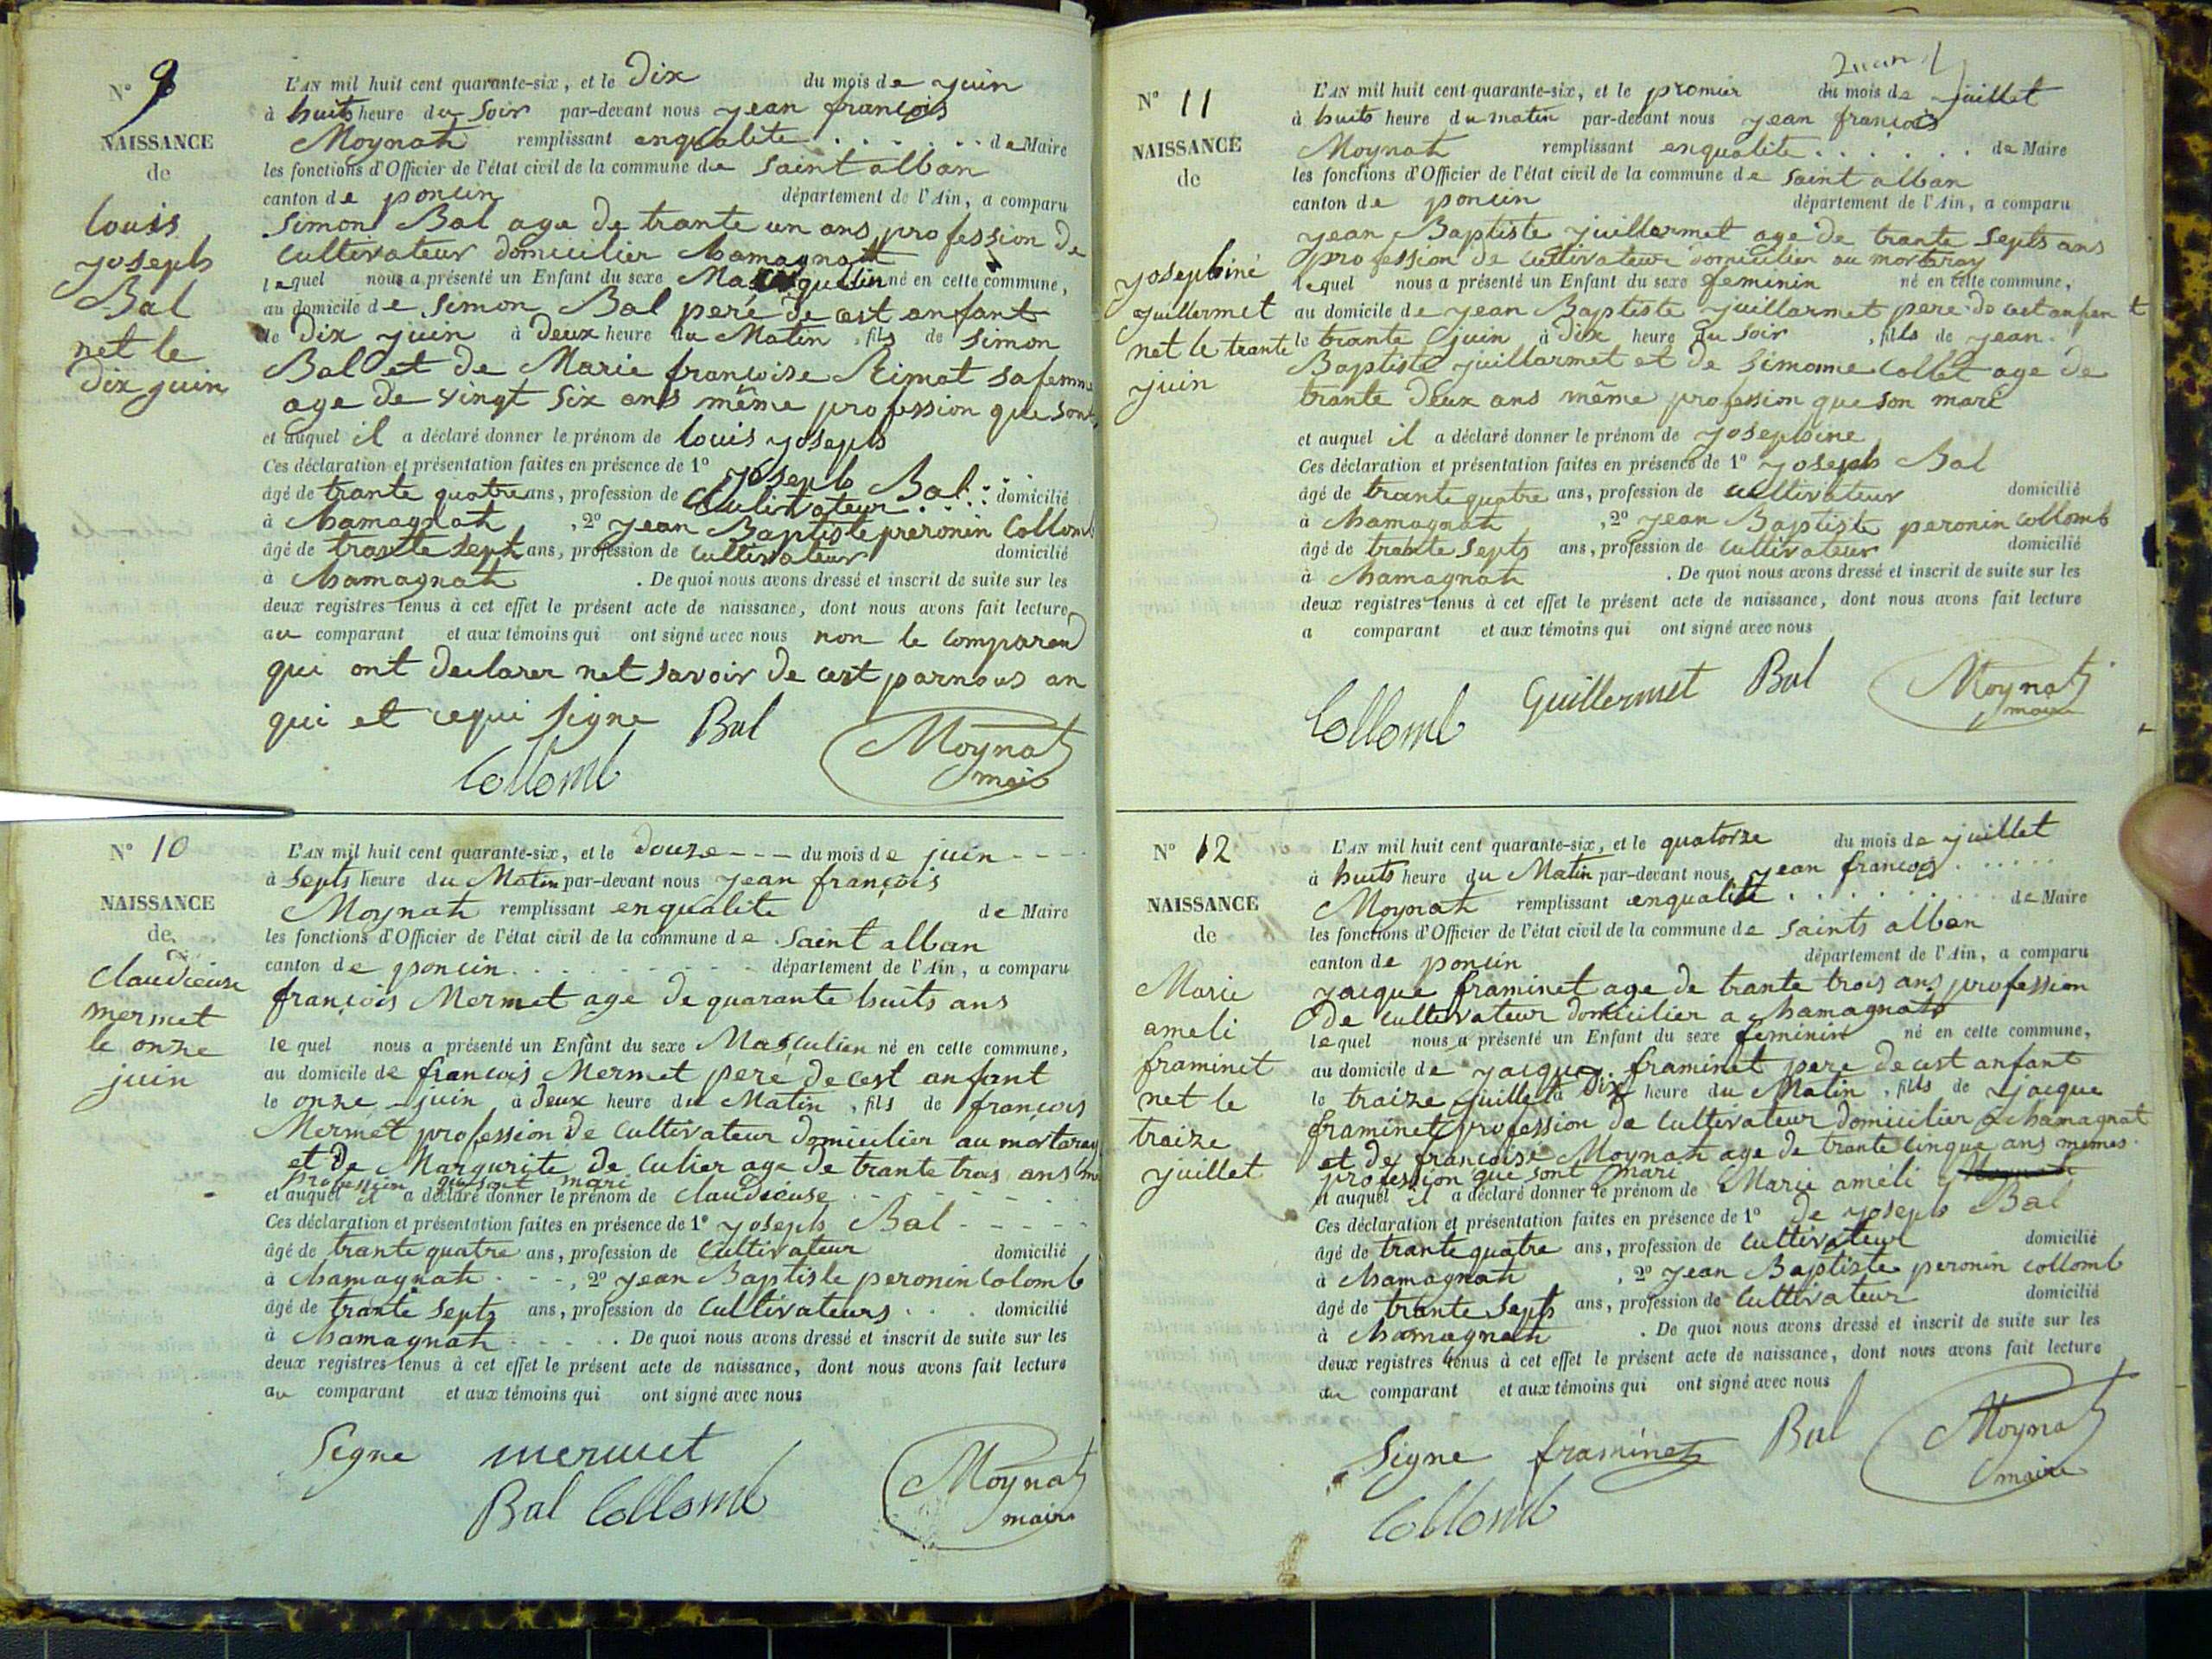 N° 9
NAISSANCE
de
louis
joseph
Bal
net le
dix juin
L'AN mil huit cent quarante-six, et le Dix du mois de juin
à huits heure du Soir par-devant nous jean françois
Moynat remplissant enqualite . . . . . . de Maire
les fonctions d'Officier de l'état civil de la commune de saint alban
canton de poncin département de l'Ain, a comparu
Simon Bal age de trante un ans profession de
Cultivateur domicilier Chamagnat
lequel nous a présenté un Enfant du sexe né en cette commune,
au domicile de Simon Bal peré de cest anfant
le Dix juin à deux heure du Matin, fils de Simon
Bal et de Marie françoise Rimat sa femme
age de vingt Six ans même profession que son
et auquel il a déclaré donner le prénom de louis joseph
Ces déclaration et présentation faites en présence de 1° joseph Bal
âgé de trante quatre ans, profession de Cultivateur domicilié
à Chamagnat, 2° jean Baptiste preronin Collomb
âgé de trante Sept ans, profession de Cultivateur domicilié
à Chamagnat. De quoi nous avons dressé et inscrit de suite sur les
deux registres tenus à cet effet le présent acte de naissance, dont nous avons fait lecture
au comparant et aux témoins qui ont signé avec nous non le Comparend
qui ont declarer net savoir de cest parnous an
qui et requi Signe Bal
Collomb Moynat
N° 10
NAISSANCE
de
Claudieuse
mermet
le onze
juin
L'AN mil huit cent quarante-six, et le Douze - - - du mois de juin - - -
à Septs heure du Matin par-devant nous jean françois
Moynat remplissant enqualite de Maire
les fonctions d'Officier de l'état civil de la commune de Saint alban
canton de poncin département de l'Ain, a comparu
françois Mermet age de quarante huits ans
lequel nous a présenté un Enfant du sexe Masculien né en cette commune,
au domicile de francois Mermet peré de cest anfant
le onze juin à deux heure du Matin, fils de françois
Mermet profession de Cultivateur domicilier au mortaray
et de Margurite de Culier age de trante trois ans
profession que sont mari
et auquel il a déclaré donner le prénom de Claudieuse
Ces déclaration et présentation faites en présence de 1° joseph Bal
âgé de trante quatre ans, profession de Cultivateur domicilié
à Chamagnat, 2° jean Baptiste peronin Colomb
âgé de trante Septs ans, profession de Cultivateurs domicilié
à Chamagnat. De quoi nous avons dressé et inscrit de suite sur les
deux registres tenus à cet effet le présent acte de naissance, dont nous avons fait lecture
au comparant et aux témoins qui ont signé avec nous
Signe mermet
Bal Collomb Moynat
maire
N° 11
NAISSANCE
de
josephiné
juillermet
net le trante
juin
L'AN mil huit cent quarante-six, et le promier du mois de juillet
à huits heure du matin par-devant nous jean françois
Moynat remplissant enqualite . . . . . . de Maire
les fonctions d'Officier de l'état civil de la commune de Saint alban
canton de poncin département de l'Ain, a comparu
jean Baptiste juillermet age de trante Septs ans
profession de cultivateur domicilier au mortaray
lequel nous a présenté un Enfant du sexe feminin né en cette commune,
au domicile de jean Baptiste juillarmet pere de cest anfent
le trante juin à dix heure du Soir, fills de jean
Baptiste juillarmet et de Simonne Collet age de
trante Deux ans même profession que son maré
et auquel il a déclaré donner le prénom de josephine
Ces déclaration et présentation faites en présence de 1° joseph Bal
âgé de trante quatre ans, profession de Cultivateur domicilié
à Chamagnat, 2° jean Baptiste peronin Collomb
âgé de trante Septs ans, profession de Cultivateur domicilié
à Chamagnat. De quoi nous avons dressé et inscrit de suite sur les
deux registres tenus à cet effet le présent acte de naissance, dont nous avons fait lecture
a comparant et aux témoins qui ont signé avec nous
Collomb Guillermet Bal Moynat
maire
N° 12
NAISSANCE
de
Marie
ameli
framinet
net le
traize
juillet
L'AN mil huit cent quarante-six, et le quatorze du mois de juillet
à huits heure du Matin par-devant nous jean francois
Moynat remplissant enqualité de Maire
les fonctions d'Officier de l'état civil de la commune de Saints alban
canton de poncin département de l'Ain, a comparu
jacque framinet age de trante trois ans profession
De cultivateur domicilier a Chamagnat
lequel nous a présenté un Enfant du sexe feminin né en cette commune,
au domicile de jacque framinet pere de cest anfant
le traize juillet à Dix heure du Matin, fills de jacque
framinet profession de Cultivateur domicilier a Chamagnat
et de francoise Moynat age de trante cinque ans mêmes
profession que sont mari
et auquel il a déclaré donner le prénom de Marie améli
Ces déclaration et présentation faites en présence de 1° de joseph Bal
âgé de trante quatre ans, profession de Cultivateur domicilié
à Chamagnat, 2° jean Baptiste peronin Collomb
âgé de trante Septs ans, profession de Cultivateur domicilié
à Chamagnat. De quoi nous avons dressé et inscrit de suite sur les
deux registres tenus à cet effet le présent acte de naissance, dont nous avons fait lecture
au comparant et aux témoins qui ont signé avec nous
Signe framinet Bal Moynat
maire
Collomb